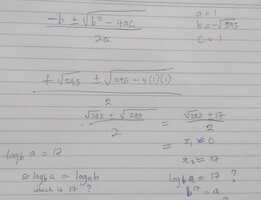 -b ± √b² - 4ac
2a
a = 1
b = -√293
c = 1
+ √293 ± √293 - 4(1)(1)
2
√293 + √289
2
= √293 + 17
2
= x₁ = 0
x₂ = 17
log_b a = 17
so log_b a = log_a b
which is 17 ?
log_b a = 17 ?
b¹⁷ = a